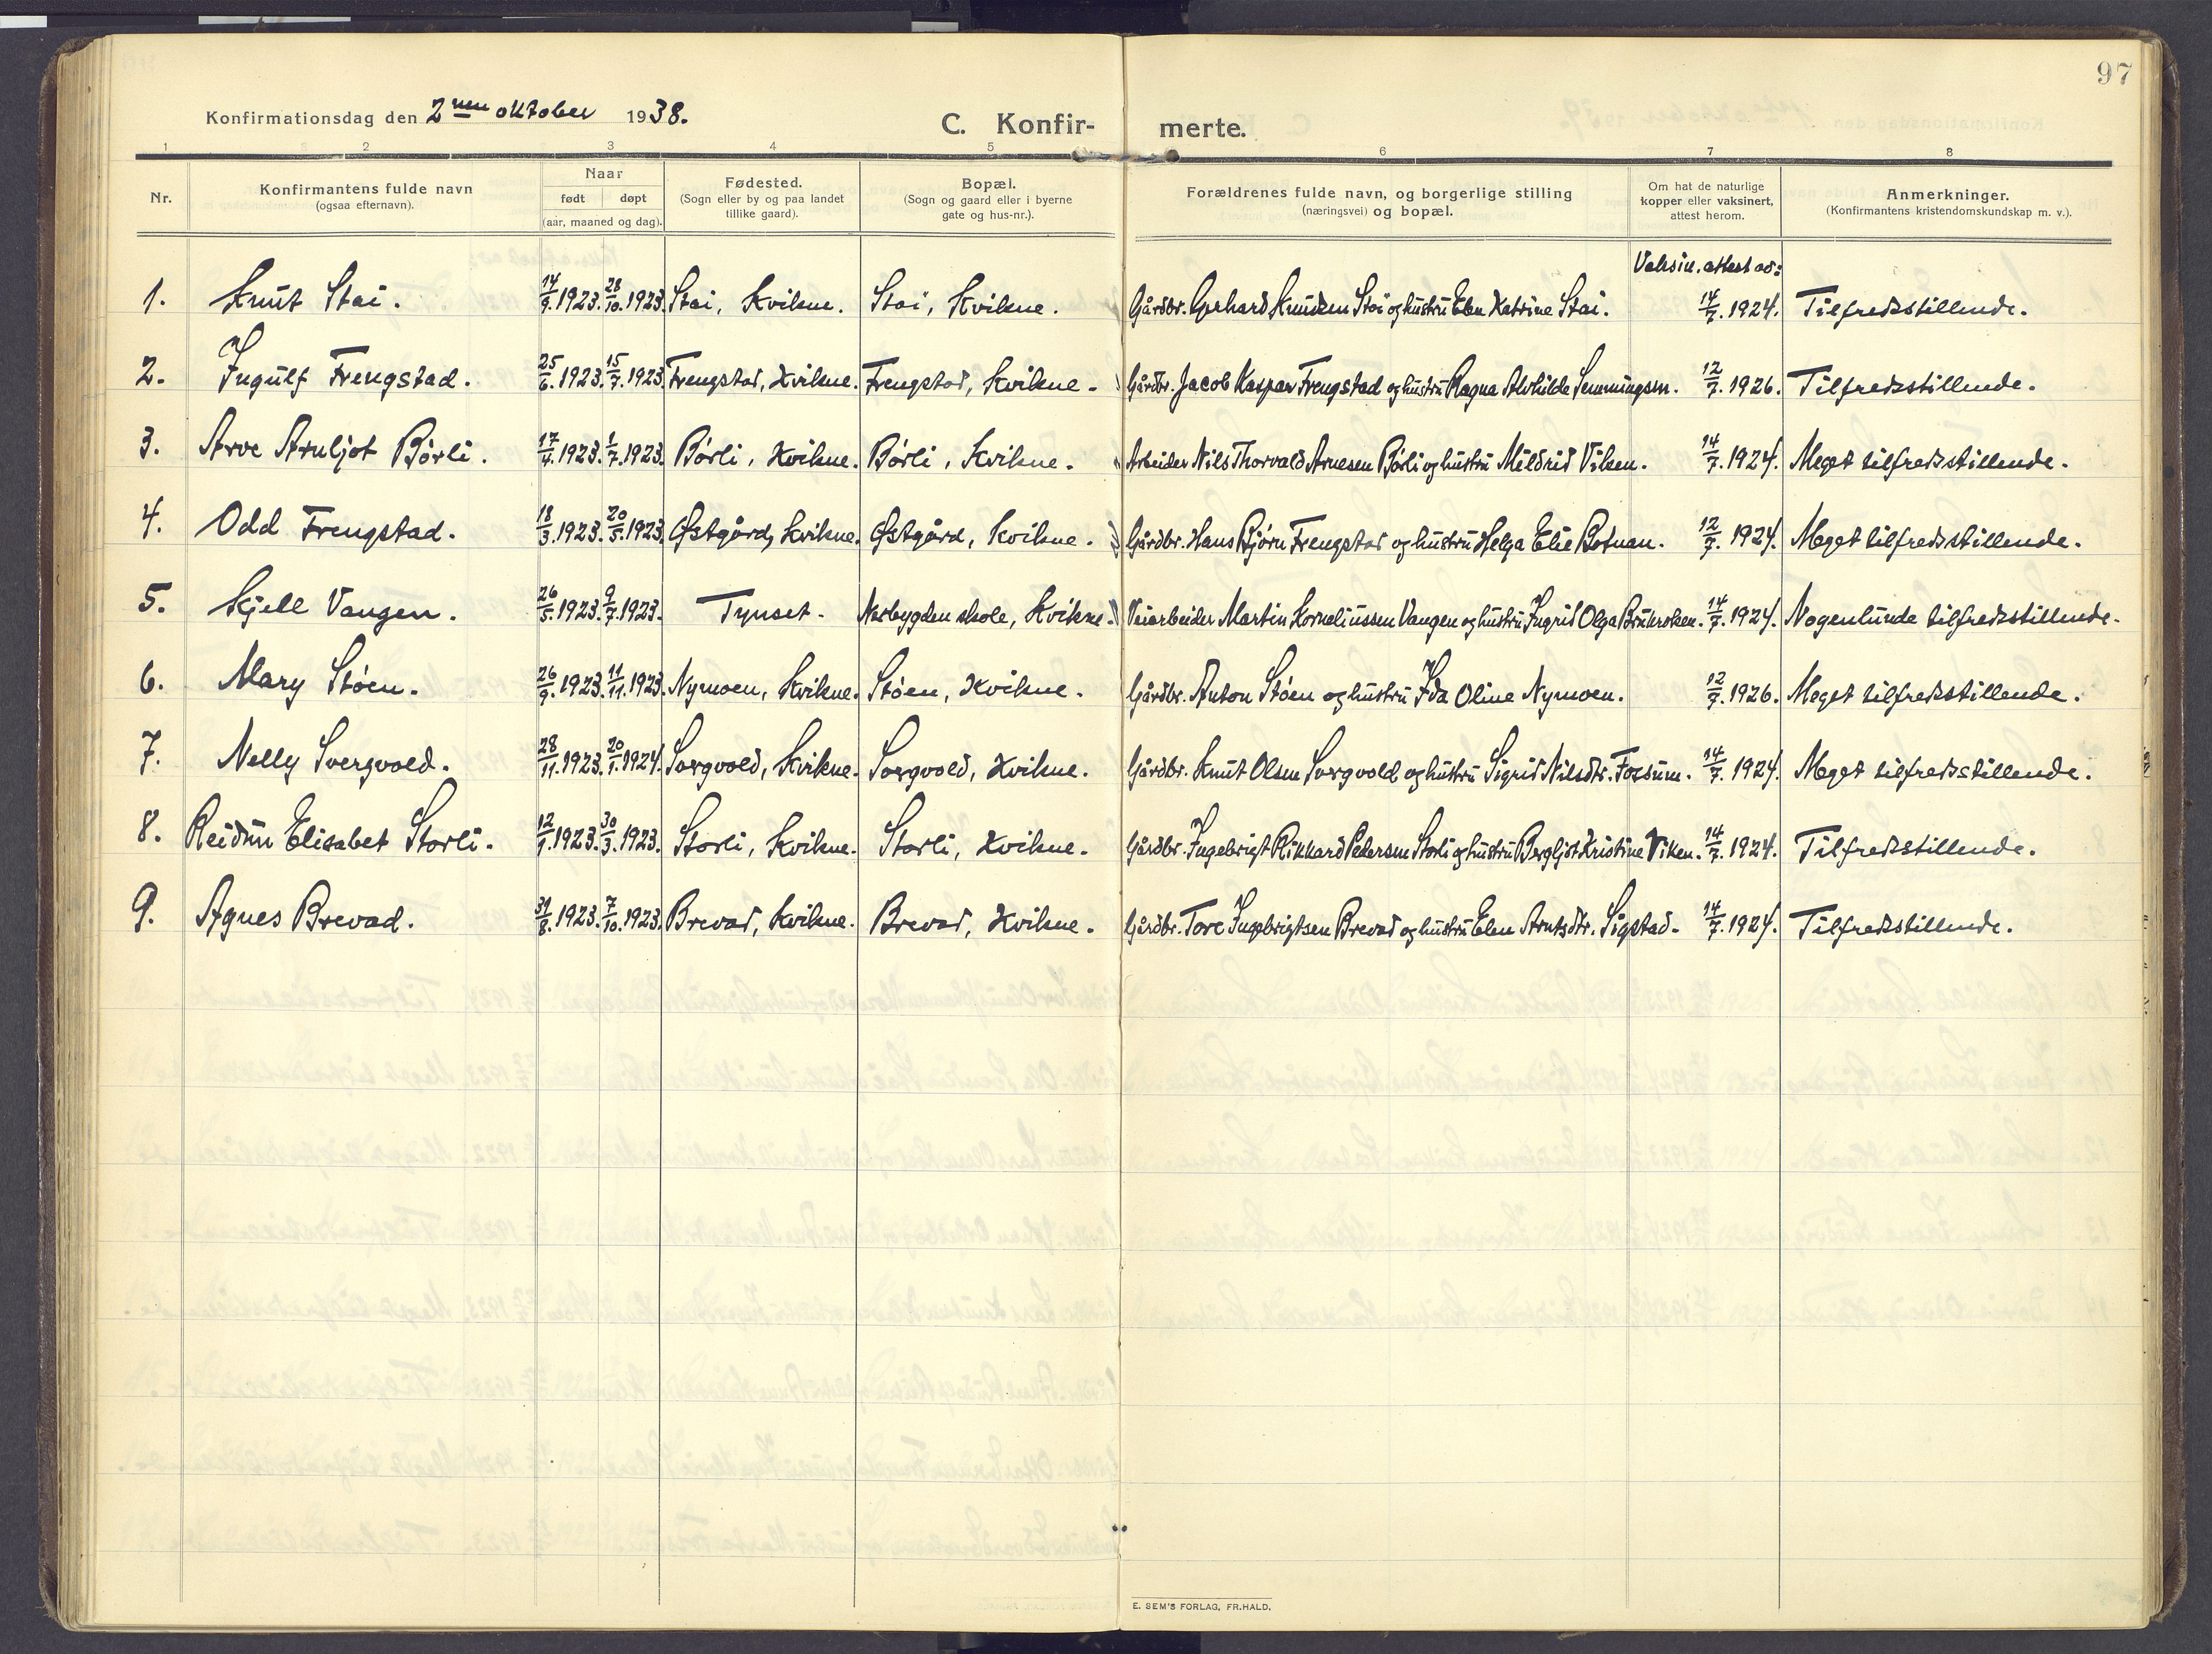 97
Konfirmationsdag den 2nen oktober 1938.
C. Konfir- merte.
1 2 3 4 5 6 7 8
Nr. Konfirmantens fulde navn (ogsaa efternavn). Naar født døpt (aar, maaned og dag). Fødested. (Sogn eller by og paa landet tillike gaard). Bopæl. (Sogn og gaard eller i byerne gate og hus-nr.). Forældrenes fulde navn, og borgerlige stilling (næringsvei) og bopæl. Om hat de naturlige kopper eller vaksinert, attest herom. Anmerkninger. (Konfirmantens kristendomskundskap m. v.).
Vaksin. attest av:
1. Knut Stai. 14/9. 1923. 28/10. 1923. Stai, Kvikne. Stai, Kvikne. Gårdbr. Gerhard Knudsen Stai og hustru Elen Katrine Stai. 14/7. 1924. Tilfredsstillende.
2. Ingulf Frengstad. 25/6. 1923. 15/7. 1923. Frengstad, Kvikne. Frengstad, Kvikne. Gårdbr. Jacob Kaspar Frengstad og hustru Ragna Alvhilde Semmingsen. 12/7. 1926. Tilfredsstillende.
3. Arve Arnljot Børli. 17/4. 1923. 1/7. 1923. Børli, Kvikne. Børli, Kvikne. Arbeider Nils Thorvald Arnesen Børli og hustru Mildrid Viken. 14/7. 1924. Meget tilfredsstillende.
4. Odd Frengstad. 18/3. 1923. 20/5. 1923. Østgård, Kvikne. Østgård, Kvikne. Gårdbr. Hans Bjørn Frengstad og hustru Helga Elie Botnan. 12/7. 1924. Meget tilfredsstillende.
5. Kjell Vangen. 26/5. 1923. 9/7. 1923. Tynset. Nærbygden skole, Kvikne. Veiarbeider Martin Korneliussen Vangen og hustru Ingrid Olga Brukroken. 14/7. 1924. Nogenlunde tilfredsstillende.
6. Mary Støen. 26/9. 1923. 11/11. 1923. Nymoen, Kvikne. Støen, Kvikne. Gårdbr. Anton Støen og hustru Ida Oline Nymoen. 12/7. 1926. Meget tilfredsstillende.
7. Nelly Svergvold. 28/11. 1923. 20/1. 1924. Svergvold, Kvikne. Svergvold, Kvikne. Gårdbr. Knut Olsen Svergvold og hustru Sigrid Nilsdtr. Fossum. 14/7. 1924. Meget tilfredsstillende.
8. Reidun Elisabet Storli. 12/1. 1923. 30/3. 1923. Storli, Kvikne. Storli, Kvikne. Gårdbr. Ingebrigt Rikkard Pedersen Storli og hustru Bergljot Kristine Viken. 14/7. 1924. Tilfredsstillende.
9. Agnes Brevad. 31/8. 1923. 7/10. 1923. Brevad, Kvikne. Brevad, Kvikne. Gårdbr. Tore Ingebrigtsen Brevad og hustru Elen Arntsdtr. Sigstad. 14/7. 1924. Tilfredsstillende.
E. SEM'S FORLAG, FR.HALD.